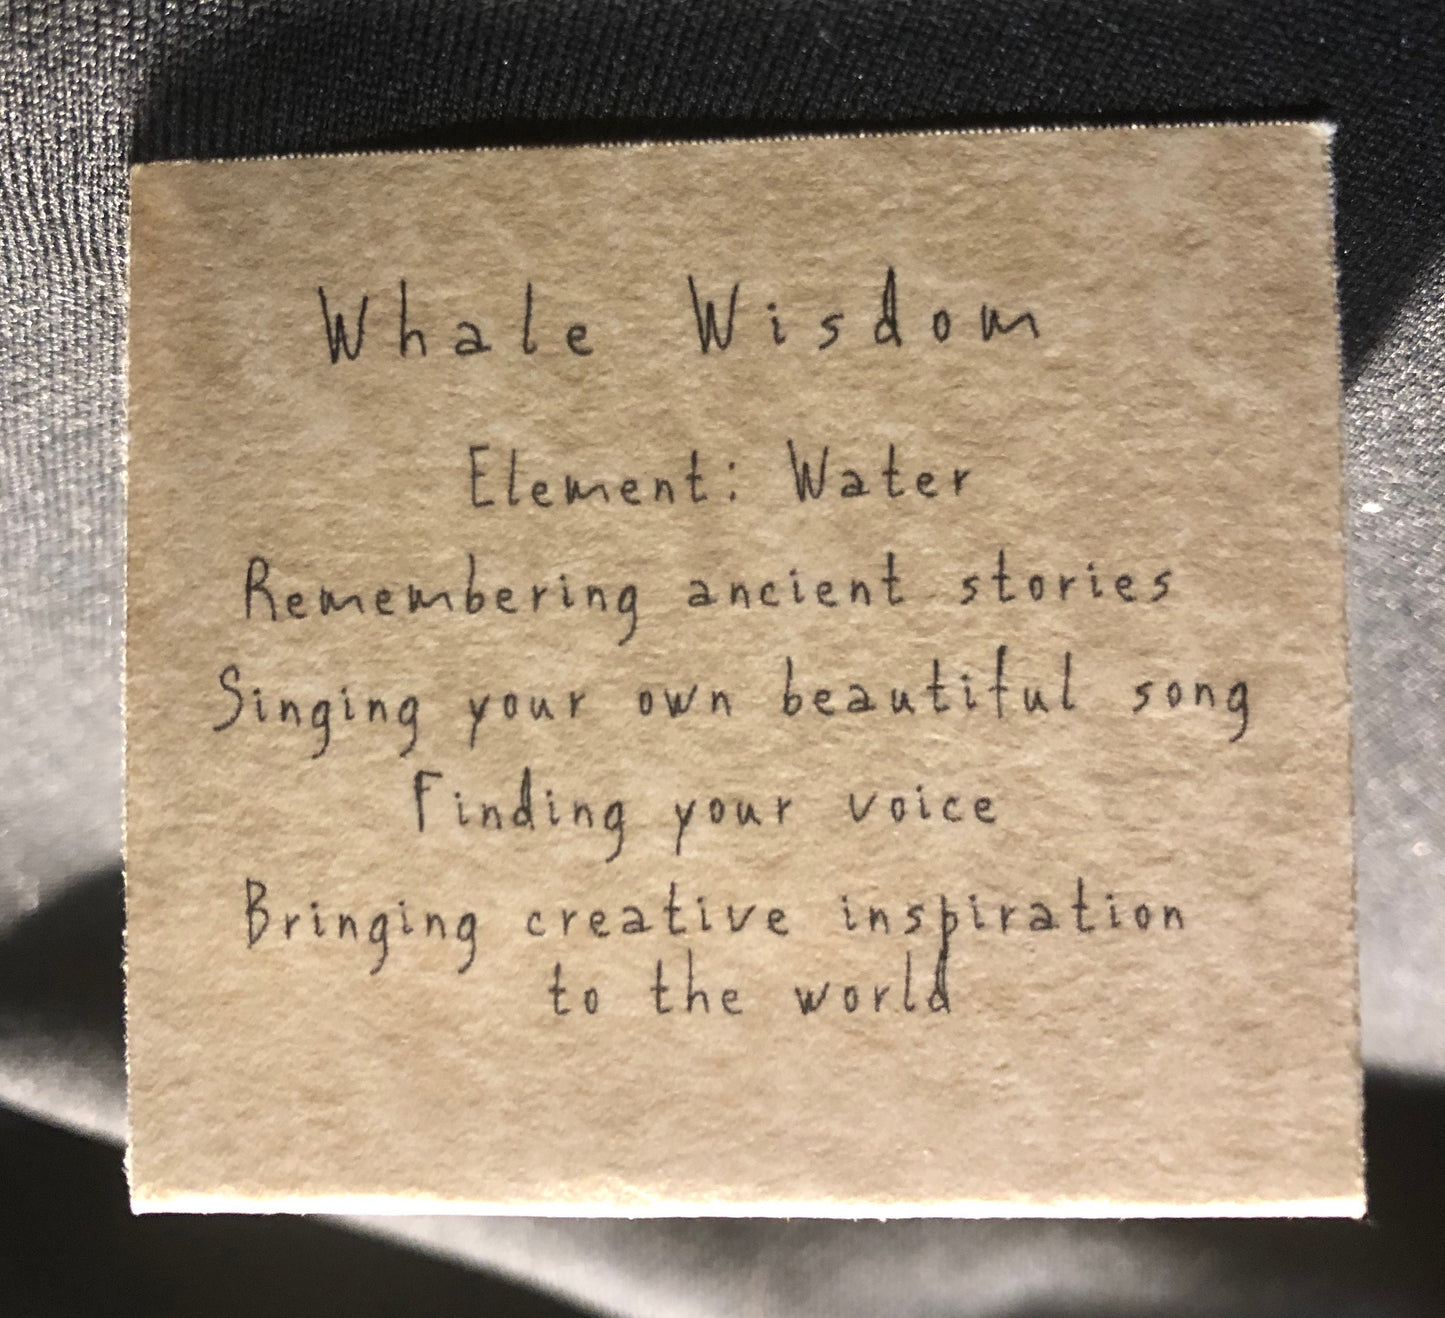 Whale Wisdom
Element: Water
Remembering ancient stories
Singing your own beautiful song
Finding your voice
Bringing creative inspiration
to the world